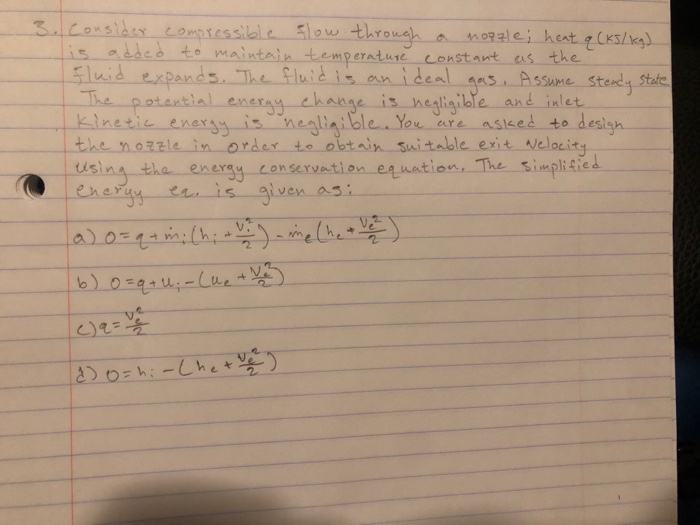 3. Consider compressible flow through a nozzle; heat q (KJ/kg)
is added to maintain temperature constant as the
fluid expands. The fluid is an ideal gas. Assume steady state
The potential energy change is negligible and inlet
kinetic energy is negligible. You are asked to design
the nozzle in order to obtain suitable exit velocity
using the energy conservation equation. The simplified
energy eq. is given as:
a) 0 = q + ṁᵢ(hᵢ + Vᵢ²/2) - ṁₑ(hₑ + Vₑ²/2)
b) 0 = q + uᵢ - (uₑ + Vₑ²/2)
c) q = Vₑ²/2
d) 0 = hᵢ - (hₑ + Vₑ²/2)